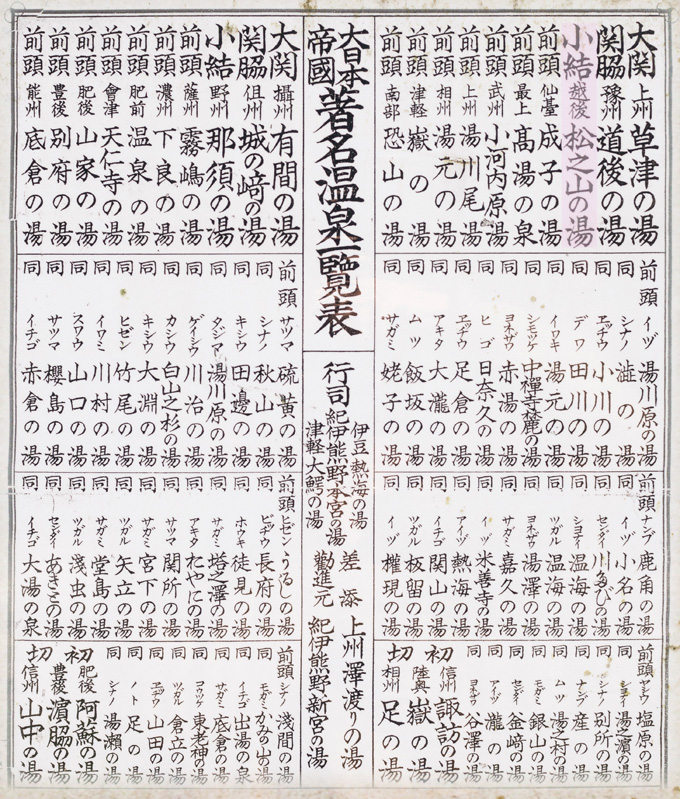 大関 上州 草津の湯
関脇 豫州 道後の湯
小結 越後 松之山の湯
前頭 仙臺 成子の湯
前頭 最上 高湯の泉
前頭 武州 小河内原湯
前頭 上州 湯川尾
前頭 相州 湯元の湯
前頭 津軽 嶽の湯
前頭 南部 恐山の湯
前頭 イヅ 湯川原の湯
同 シナノ 澁の湯
同 小川の湯
同 デワ 田川の湯
同 イワキ 湯元の湯
同 シモツケ 中禪寺麓の湯
同 ヨネザワ 赤湯の湯
同 ヒゴ 日奈久の湯
同 足倉の湯
同 アキタ 大瀧の湯
同 ムツ 飯坂の湯
同 サガミ 姥子の湯
前頭 ナンブ 鹿角の湯
同 イヅ 小名の湯
同 センダイ 川たびの湯
同 温海の湯
同 ツガル 温湯の湯
同 ヨネザワ 湯澤の湯
同 サガミ 嘉久の湯
同 イヅ 米善寺の湯
同 アイヅ 熱海の湯
同 イチゴ 関山の湯
同 ツガル 板留の湯
同 イヅ 權現の湯
前頭 塩原の湯
同 湯之濱の湯
同 シナノ 別所の湯
同 ナンブ 産の湯
同 ムツ 湯之村の湯
同 モガミ 銀山の湯
同 センダイ 釜﨑の湯
同 アイヅ 瀧の湯
同 ヨネザワ 谷澤の湯
初 信州 諏訪の湯
陸奥 嶽の湯
切 相州 足の湯
大日本帝國
著名温泉一覽表
行司
伊豆 熱海の湯
紀伊熊野本宮の湯
津軽 大鰐の湯
差添 上州澤渡りの湯
勸進元 紀伊熊野新宮の湯
大関 攝州 有間の湯
関脇 但州 城の﨑の湯
小結 野州 那須の湯
前頭 薩州 霧嶋の湯
前頭 濃州 下良の湯
前頭 肥前 温泉の湯
前頭 會津 天仁寺の湯
前頭 肥後 山家の湯
前頭 豊後 別府の湯
前頭 能州 底倉の湯
前頭 サツマ 硫黄の湯
同 シナノ 秋山の湯
同 キシウ 田邊の湯
同 タジマ 湯川原の湯
同 ゲイシウ 川治の湯
同 カシウ 白山之杉の湯
同 キシウ 大淵の湯
同 ヒゼン 竹尾の湯
同 イワミ 川村の湯
同 スワウ 山口の湯
同 サツマ 櫻島の湯
同 イチゴ 赤倉の湯
前頭 ヒゼン うるしの湯
同 ビッチウ 長府の湯
同 ホウキ 徒見の湯
同 サガミ 塔之澤の湯
同 アキタ たやにの湯
同 サツマ 関所の湯
同 サガミ 宮下の湯
同 ツガル 矢立の湯
同 サガミ 堂島の湯
同 ツガル 淺虫の湯
同 センダイ あきうの湯
同 イチゴ 大湯の泉
前頭 シナノ 淺間の湯
同 モガミ かみの山の湯
同 イチゴ 出湯の泉
同 サガミ 底倉の湯
同 東老神の湯
同 ツガル 倉立の湯
同 山田の湯
同 ノト 足の湯
同 シナノ 湯瀬の湯
初 肥後 阿蘇の湯
豊後 濵脇の湯
切 信州 山中の湯